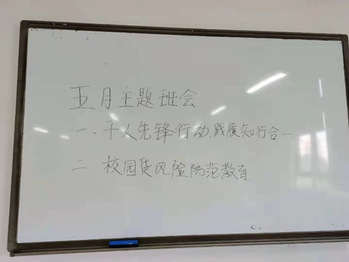 五月主题班会
一、千人先锋行动,践履知行合一
二、校园贷风险防范教育